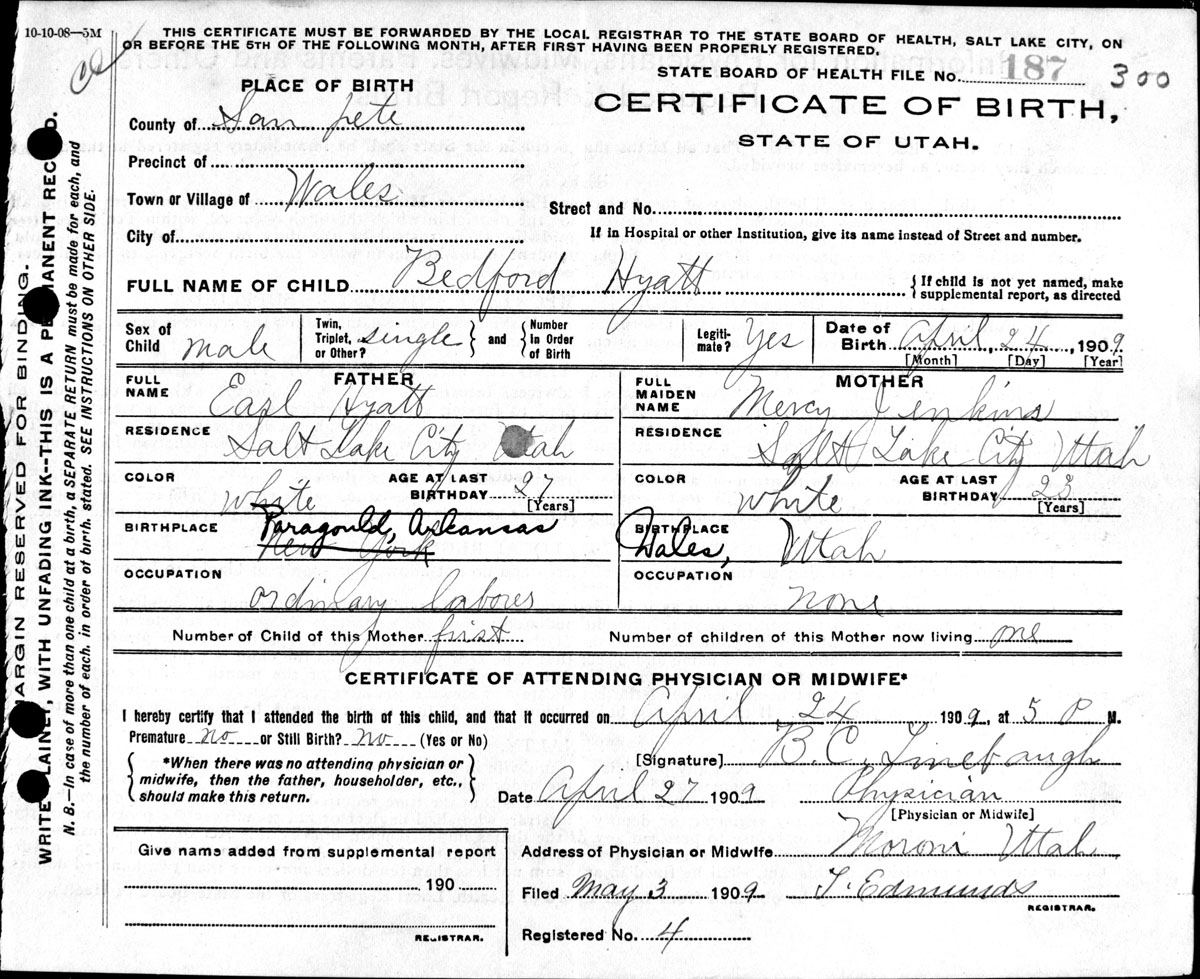 10-10-08—5M
THIS CERTIFICATE MUST BE FORWARDED BY THE LOCAL REGISTRAR TO THE STATE BOARD OF HEALTH, SALT LAKE CITY, ON
OR BEFORE THE 5TH OF THE FOLLOWING MONTH, AFTER FIRST HAVING BEEN PROPERLY REGISTERED.
STATE BOARD OF HEALTH FILE No. 187 300
PLACE OF BIRTH
CERTIFICATE OF BIRTH,
STATE OF UTAH.
County of San pete
Precinct of
Town or Village of Wales
Street and No.
City of
If in Hospital or other Institution, give its name instead of Street and number.
FULL NAME OF CHILD Bedford Hyatt { If child is not yet named, make
supplemental report, as directed
Sex of Child male Twin, Triplet, or Other? single } and { Number in Order of Birth Legiti-mate? Yes Date of Birth April, 24, 1909
[Month] [Day] [Year]
FATHER MOTHER
FULL NAME Earl Hyatt FULL MAIDEN NAME Mercy Jenkins
RESIDENCE Salt Lake City Utah RESIDENCE Salt Lake City Utah
COLOR White AGE AT LAST BIRTHDAY 27 [Years] COLOR white AGE AT LAST BIRTHDAY 23 [Years]
BIRTHPLACE Paragould, Arkansas BIRTHPLACE Wales, Utah
New York
OCCUPATION ordinary laborer OCCUPATION none
Number of Child of this Mother first Number of children of this Mother now living one
CERTIFICATE OF ATTENDING PHYSICIAN OR MIDWIFE*
I hereby certify that I attended the birth of this child, and that it occurred on April 24 1909, at 5 P M.
Premature no or Still Birth? no (Yes or No)
[Signature] B. C. Linebaugh
{ *When there was no attending physician or
midwife, then the father, householder, etc.,
should make this return. }
Date April 27 1909 Physician
[Physician or Midwife]
Address of Physician or Midwife Moroni Utah
Give name added from supplemental report
190
REGISTRAR.
Filed May 3 1909 T. Edmunds
REGISTRAR.
Registered No. 4
MARGIN RESERVED FOR BINDING.
WRITE PLAINLY, WITH UNFADING INK--THIS IS A PERMANENT RECORD.
N. B.—In case of more than one child at a birth, a SEPARATE RETURN must be made for each, and
the number of each, in order of birth, stated. SEE INSTRUCTIONS ON OTHER SIDE.